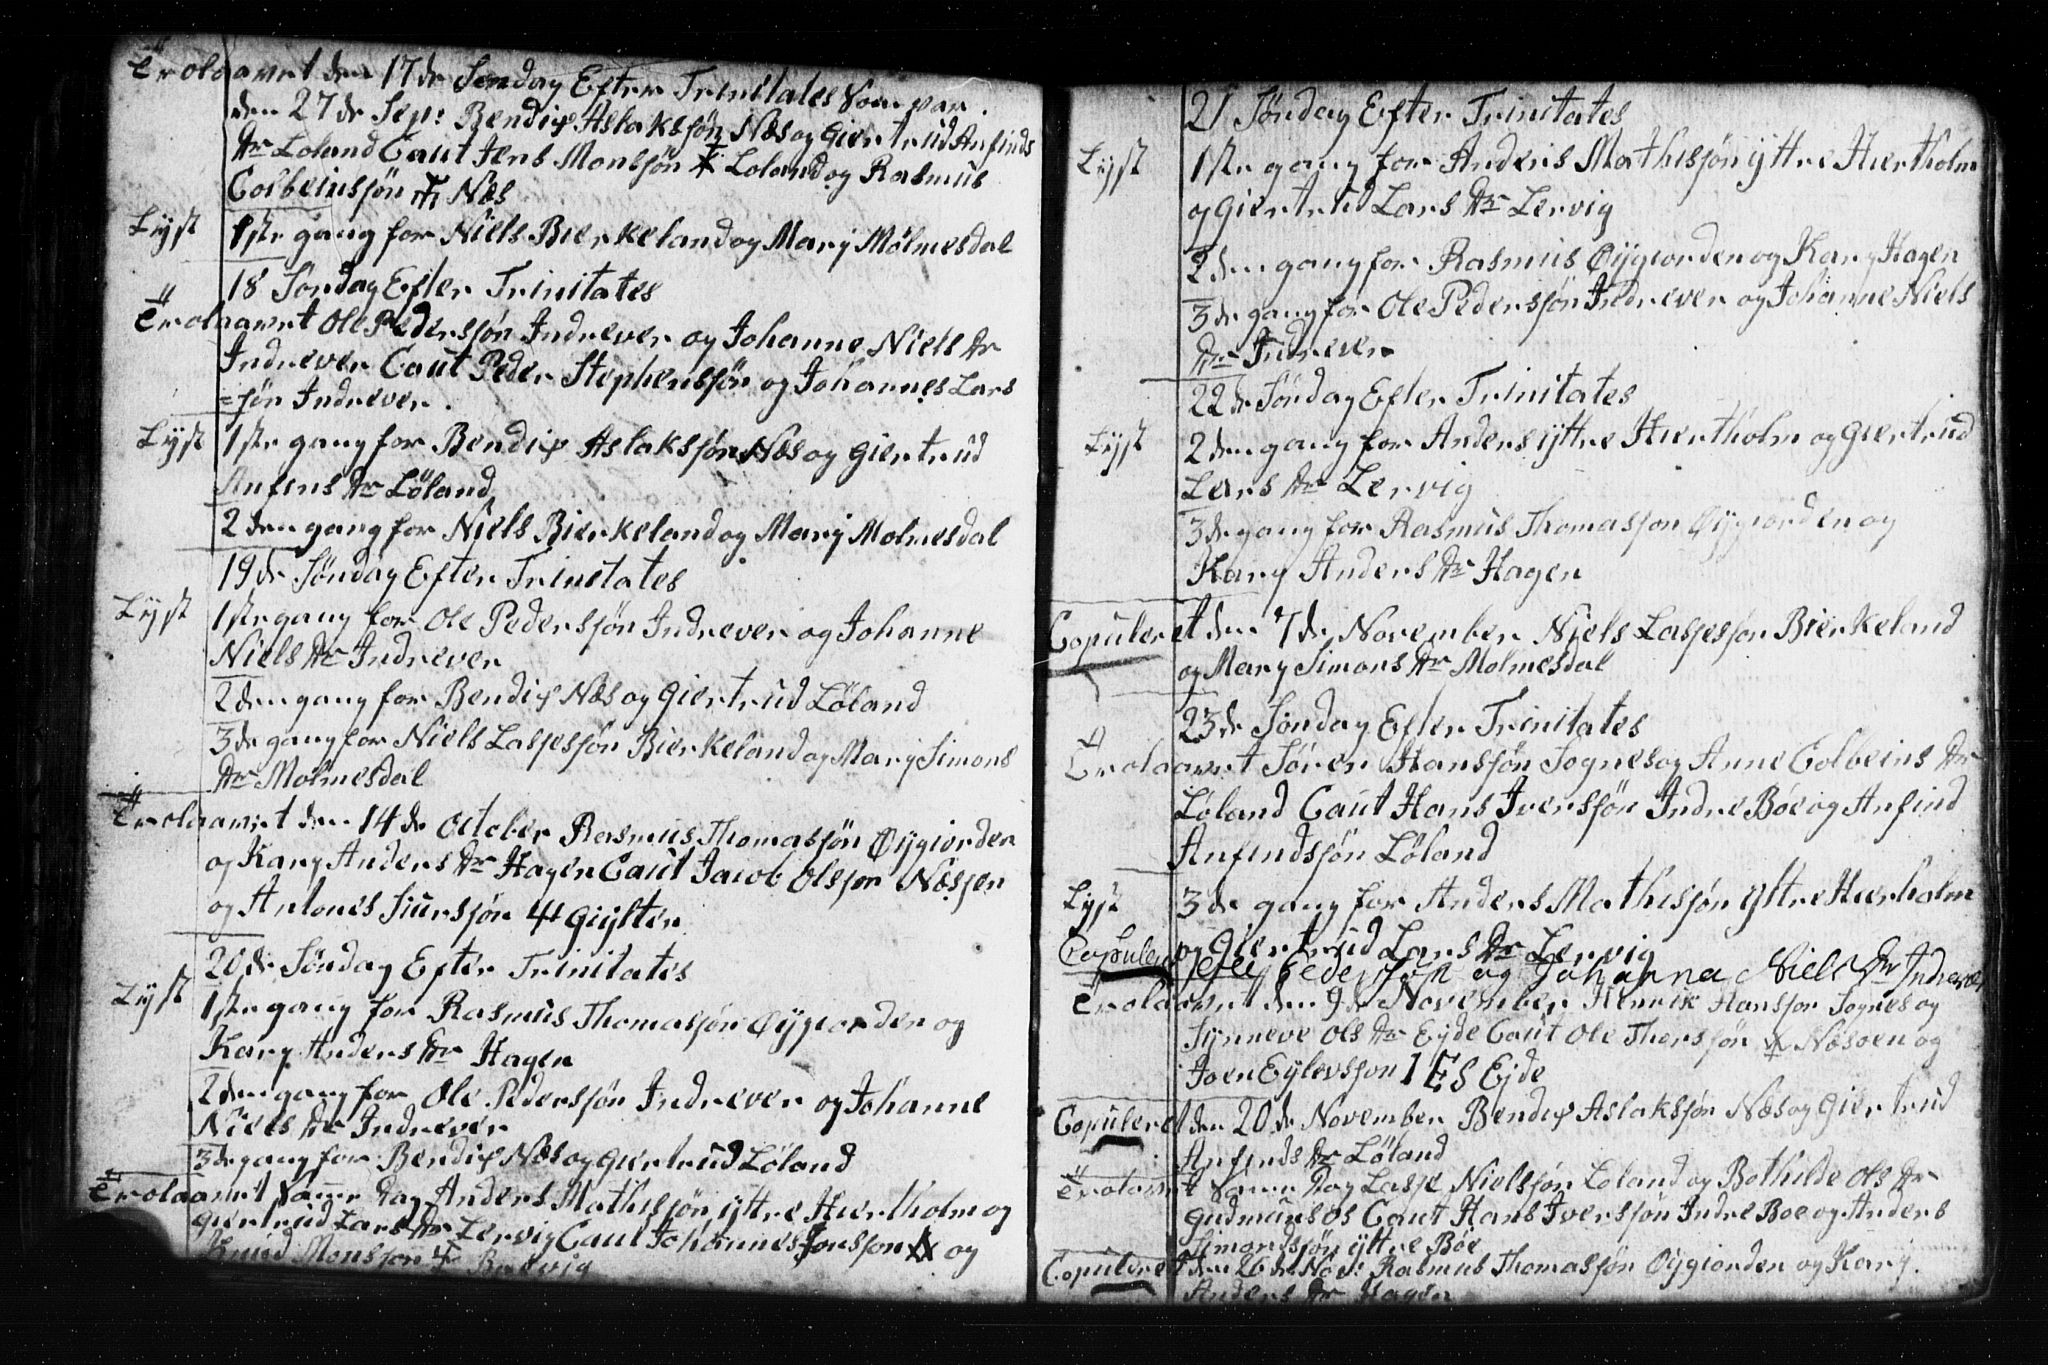 Trolaavet den 17de Søndag Efter Trinitates Som var
den 27de Sep: Bendix Aslaksøn Næs og Giertrud Anfinds
dr Loland Caut Jens Monsøn Loland og Rasmus
Colbeinsøn Næs
Lyst 1ste gang for Niels Bierkeland og Mary Mølmesdal
18 Søndag Efter Trinitates
Trolaavet Ole Pedersøn Indrever og Johanne Niels dr
Indrever Caut Peder Stephensøn og Johannes Lars
=søn Indrever.
Lyst 1ste gang for Bendix Aslaksøn Næs og Giertrud
Anfens dr Løland
2den gang for Niels Bierkeland og Mary Molmesdal
19de Søndag Efter Trinitates
Lyst 1ste gang for Ole Pedersøn Indrever og Johanne
Niels dr Indrever
2den gang for Bendix Næs og Giertrud Løland
3de gang for Niels Lassesøn Bierkeland og Mary Simons
dr Molmesdal
Trolaavet den 14de October Rasmus Thomasøn Øygiorden
og Kary Anders dr Hagen Caut Jacob Olsøn Næssen
og Antonis Siursøn Giylten
20de Søndag Efter Trinitates
Lyst 1ste gang for Rasmus Thomasøn Øygiorden og
Kary Anders dr Hagen
2den gang for Ole Pedersøn Indrever og Johanne
Niels dr Indrever
3de gang for Bendix Næs og Giertrud Løland
Trolaavet Same dag Anders Mathisøn yttre Hiertholm og
Giertrud Lars dr Lervig Caut Johannes Jonsson og
Knud Monsøn
21 Søndag Efter Trinitates
Lyst 1ste gang for Anders Mathisøn yttre Hiertholm
og Giertrud Lars dr Lervig
2den gang for Rasmus Øygiorden og Kary Hagen
3de gang for Ole Pedersøn Indrever og Johanne Niels
dr Indrever
22de Søndag Efter Trinitates
Lyst 2den gang for Anders yttre Hiertholm og Giertrud
Lars dr Lervig
3de gang for Rasmus Thomasson Øygiorden og
Kary Anders dr Hagen
Copuleret den 7de November Niels Lassesøn Bierkeland
og Mary Simons dr Molmesdal
23de Søndag Efter Trinitates
Trolaavet Søren Hansøn Sognes og Anne Colbeins dr
Løland Caut Hans Iversøn Indre Bøe og Anfind
Anfindsøn Løland
Lyst 3de gang for Anders Mathisøn yttre Hierholm
og Giertrud Lars dr Lervig
Copuleret Pedersøn og Johanna Niels Dr Indrevær
Trolaavet den 9de November Henrik Hansøn Sognes og
Synneve Ols dr Eyde Caut Ole Thorsøn Næsoen og
Joen Eylevsson IES Ejde
Copuleret den 20de November Bendix Aslaksøn Næs og Giertrud
Anfinds dr Løland
Trolaavet Same Dag Lasse Nielsøn Loland og Bothilde Ols dr
Gudmunsøs Caut Hans Iversøn Indre Boe og Anders
Simondsøn yttre Bøe
Copuleret den 26de Nov: Rasmus Thomasøn Øygiorden og Kary
Anders dr Hagen